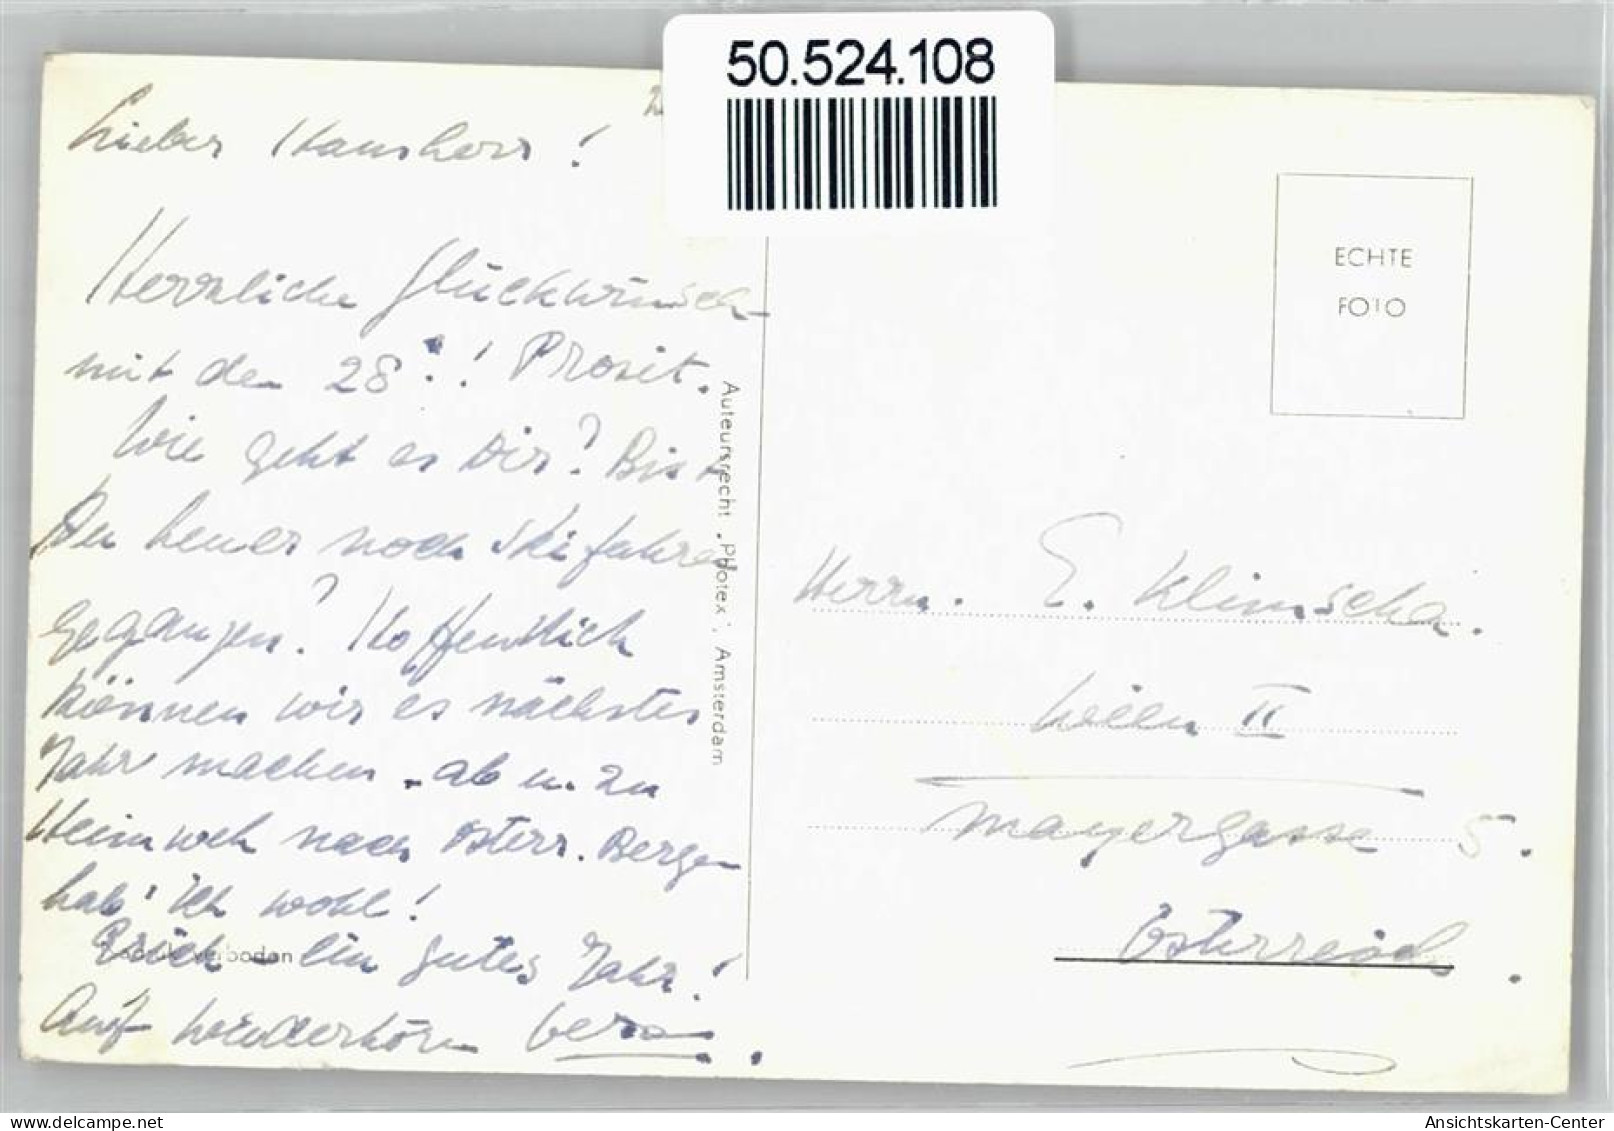 50.524.108
Lieber Hausherr!
Herzliche Glückwünsch-
mit den 28.! Prosit.
Wie geht es Dir? Bist
Du heuer noch Skifahren
gegangen? Hoffentlich
können wir es nächstes
Jahr machen. ab u. zu
Heimweh nach österr. Bergen
hab' ich wohl!
Erich - ein gutes Jahr!
Auf Wiederhören
verboden
Auteursrecht „Photex", Amsterdam
ECHTE
FOTO
Herrn. E. Klimscha.
Wien II
Mayergasse 5.
Österreich.
Ansichtskarten-Center